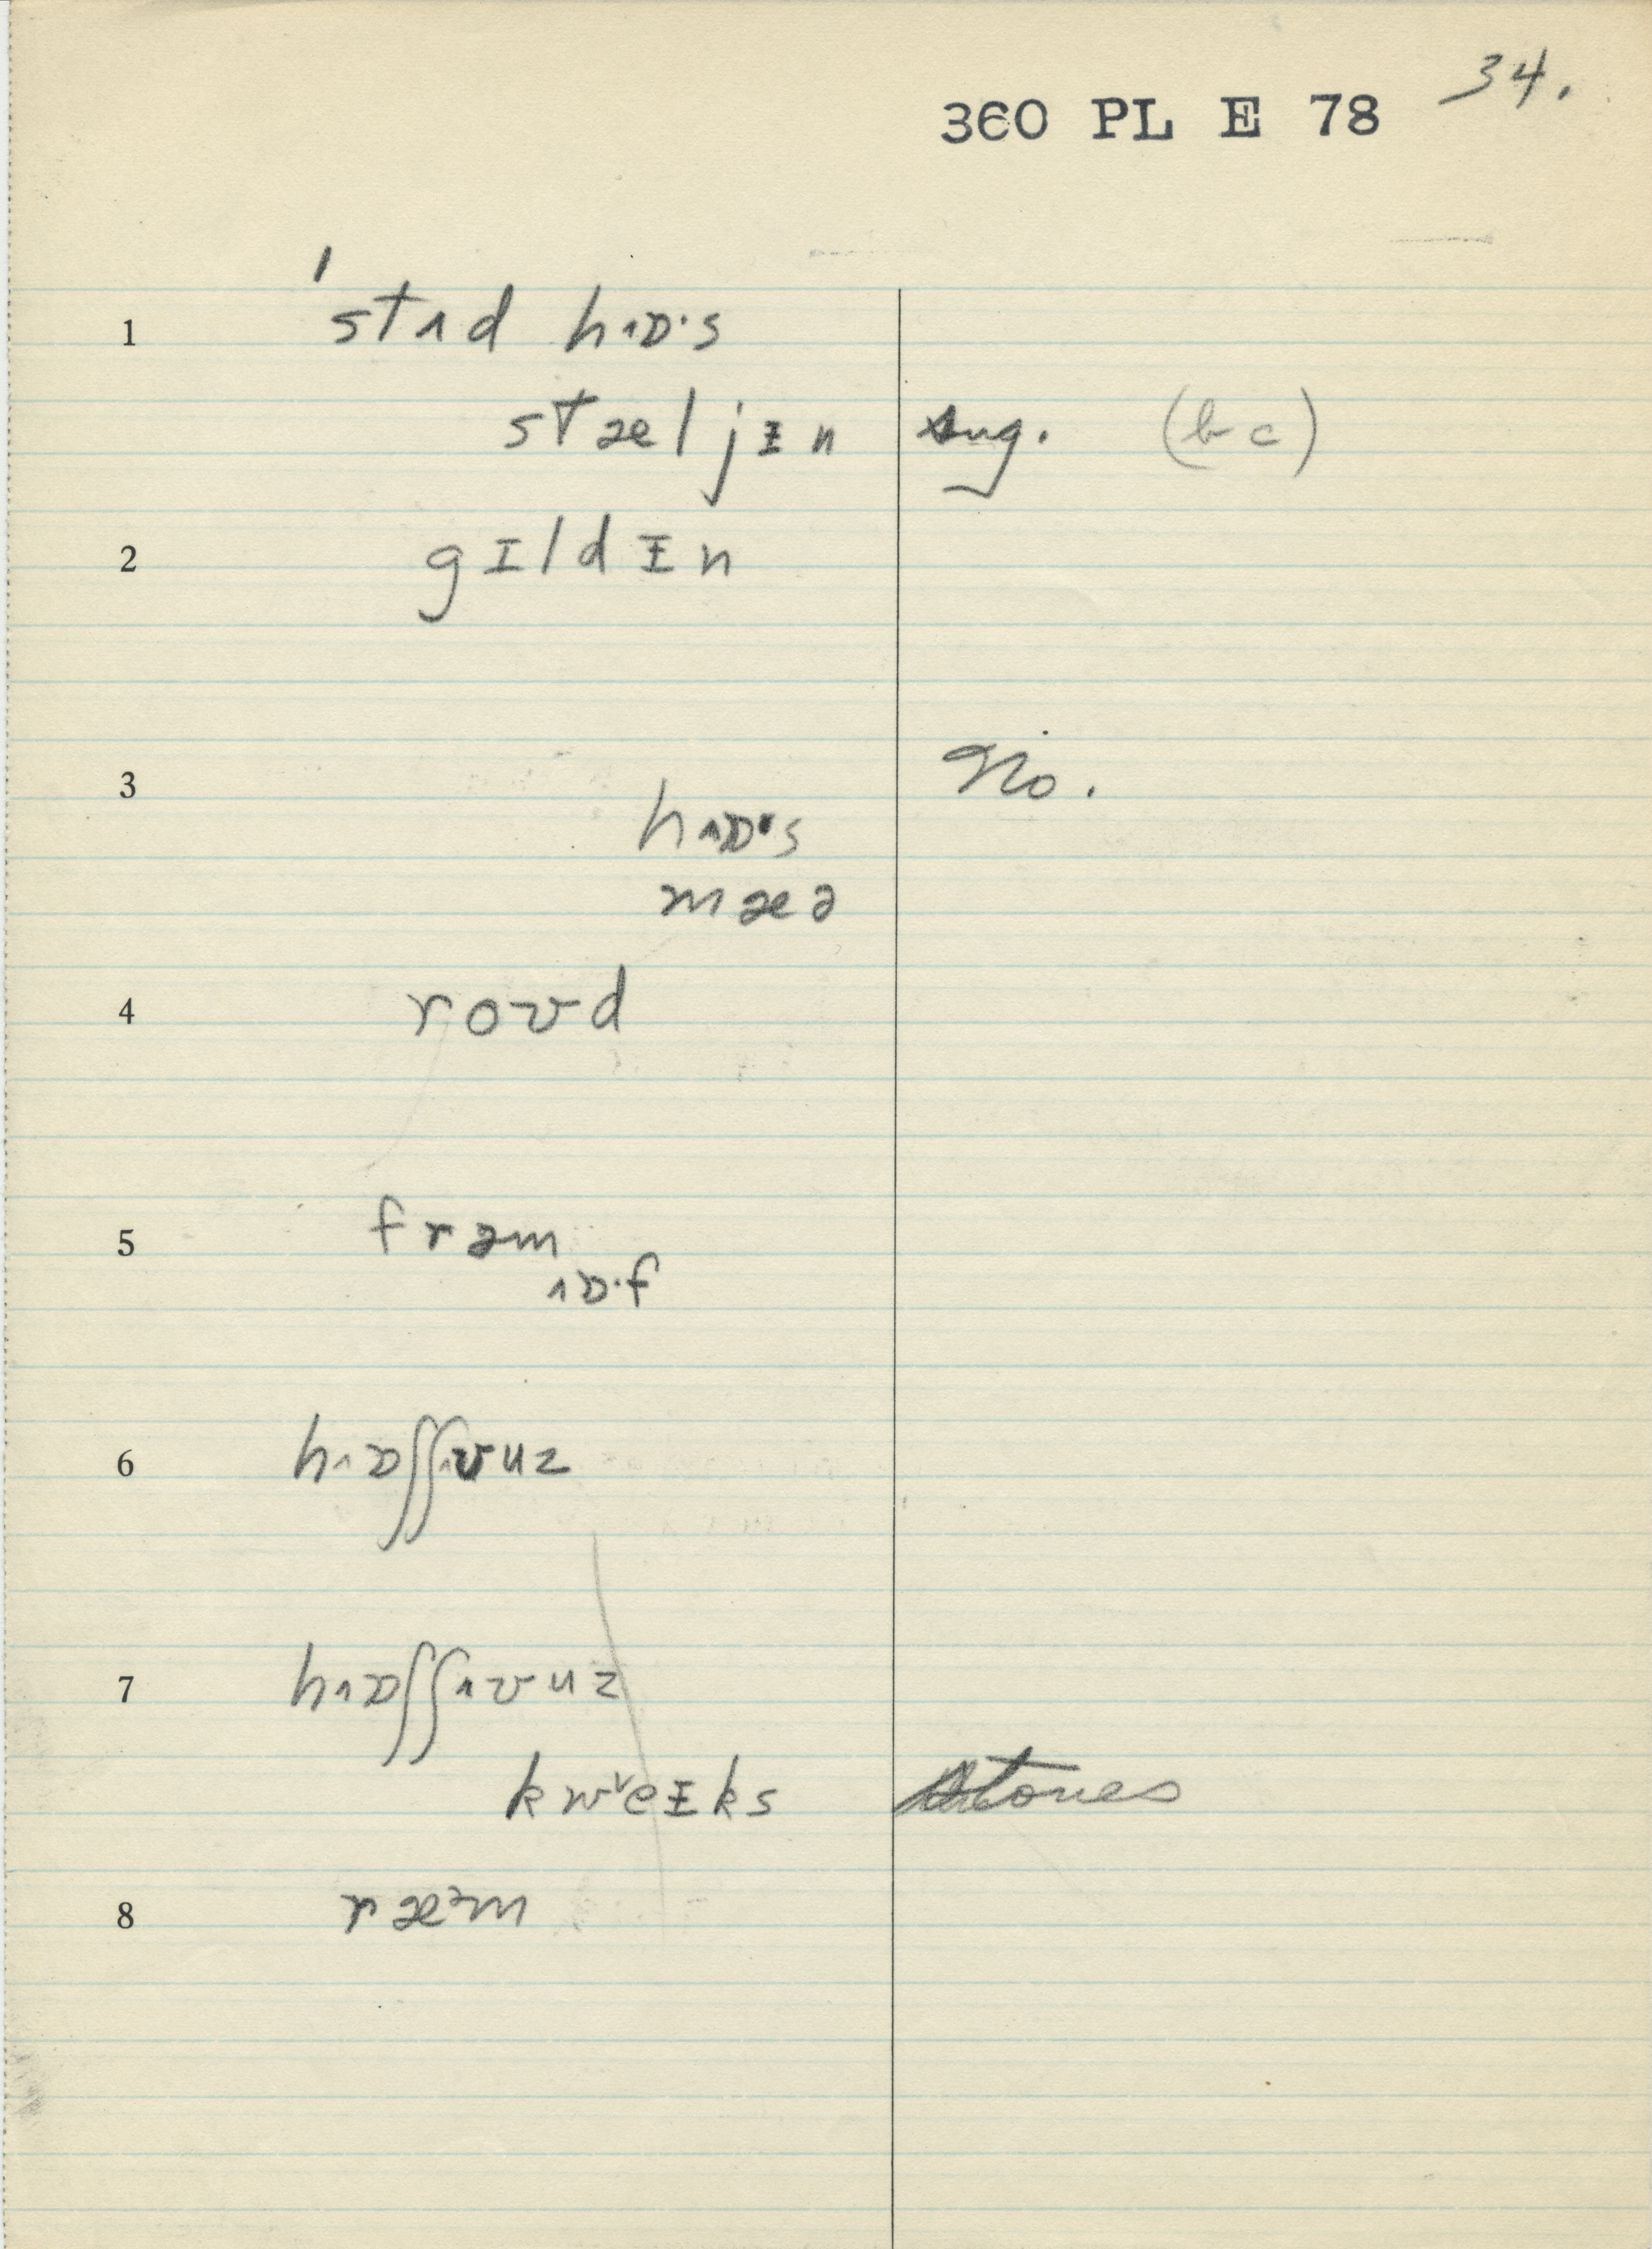 34.
360 PL E 78
1 ˈstʌd hɒ·s
stæljɪn sug. (b c)
2 gɪldɪn
3 No.
hʌɒ·s
mæə
4 roʊd
5 frəm
ʌɒ·f
6 hʌɒʃʃʌʊuz
7 hʌɒʃʃʌʊuz
kwᵛeɪks stones
8 ræᵊm